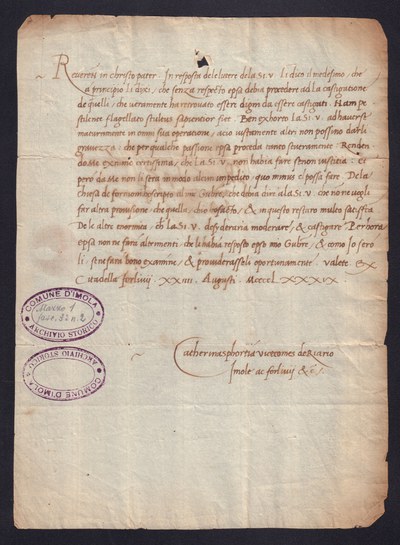 Reverens in christo pater. In resposta de le littere de la S. V. li dico el medesimo, che
a principio li dixi, che senza respecto epsa debia procedere ad la castigatione
de quelli, che veramente ha retrovato esseri digni da esseri castigati. Nam pe
stilente flagellato stultus sapientior fiet. Ben exhorto la S. V. ad haversi
maturamenti in omni sua operatione, acio iustamente altri non possino darli
gravezza: che per qualche passione epsa proceda tanto severamente. Renden
dome certissima, che la S. V. non habia fare senon iustitia: et
pero da me non li sera in modo alcun impedito, quo minus el possa fare. De la
Chiesa de
far altra provisione che quella, & in questo restaro multo satisfta
De le altre enorme a, che la S. V. desyderaria moderare, & castigare Per hora
epsa non ne fara altrimenti che li habia resposto epso mio Gubre, & como Io sero
li se ne fara bono examine, & providerassi opportunamente. valete. Ex
Citadella forlivii XXIII Augusti MCCCCLXXXIX
Catherina Sphortia vicecomes de Riario
Imole ac forlivii &c.
COMUNE D'IMOLA
ARCHIVIO STORICO
Mazzo 1
fasc. 82 n. 2
COMUNE D'IMOLA
ARCHIVIO STORICO